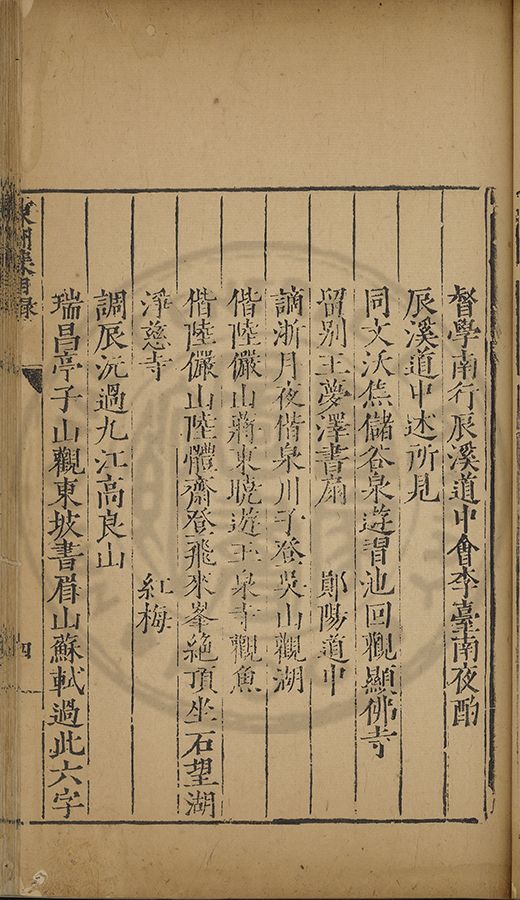 督學南行辰溪道中會李臺南夜酌
辰溪道中述所見
同文沃焦儲谷泉遊習池回觀顯佛寺
留别王夢澤書扇　鄖陽道中
謫浙月夜偕泉川子登吳山觀湖
偕陸儼山蔣東曉遊玉泉寺觀魚
偕陸儼山陸體齋登飛來峯絶頂坐石望湖
淨慈寺　紅梅
調辰沅過九江高良山
瑞昌亭子山觀東坡書眉山蘇軾過此六字
集目録
四